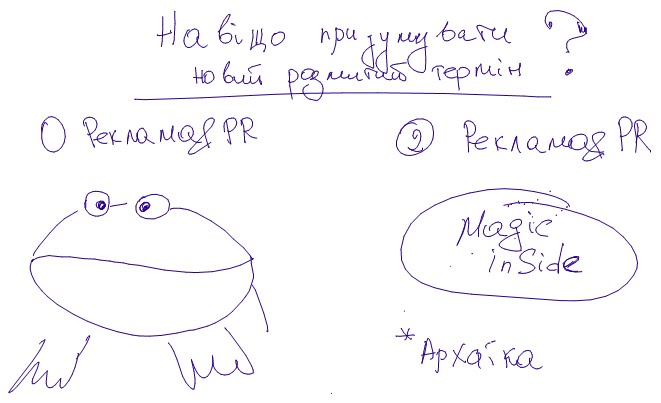 Навіщо придумувати
новий розмитий термін ?
1) Реклама & PR
2 Реклама & PR
Magic
inside
* Архаїка